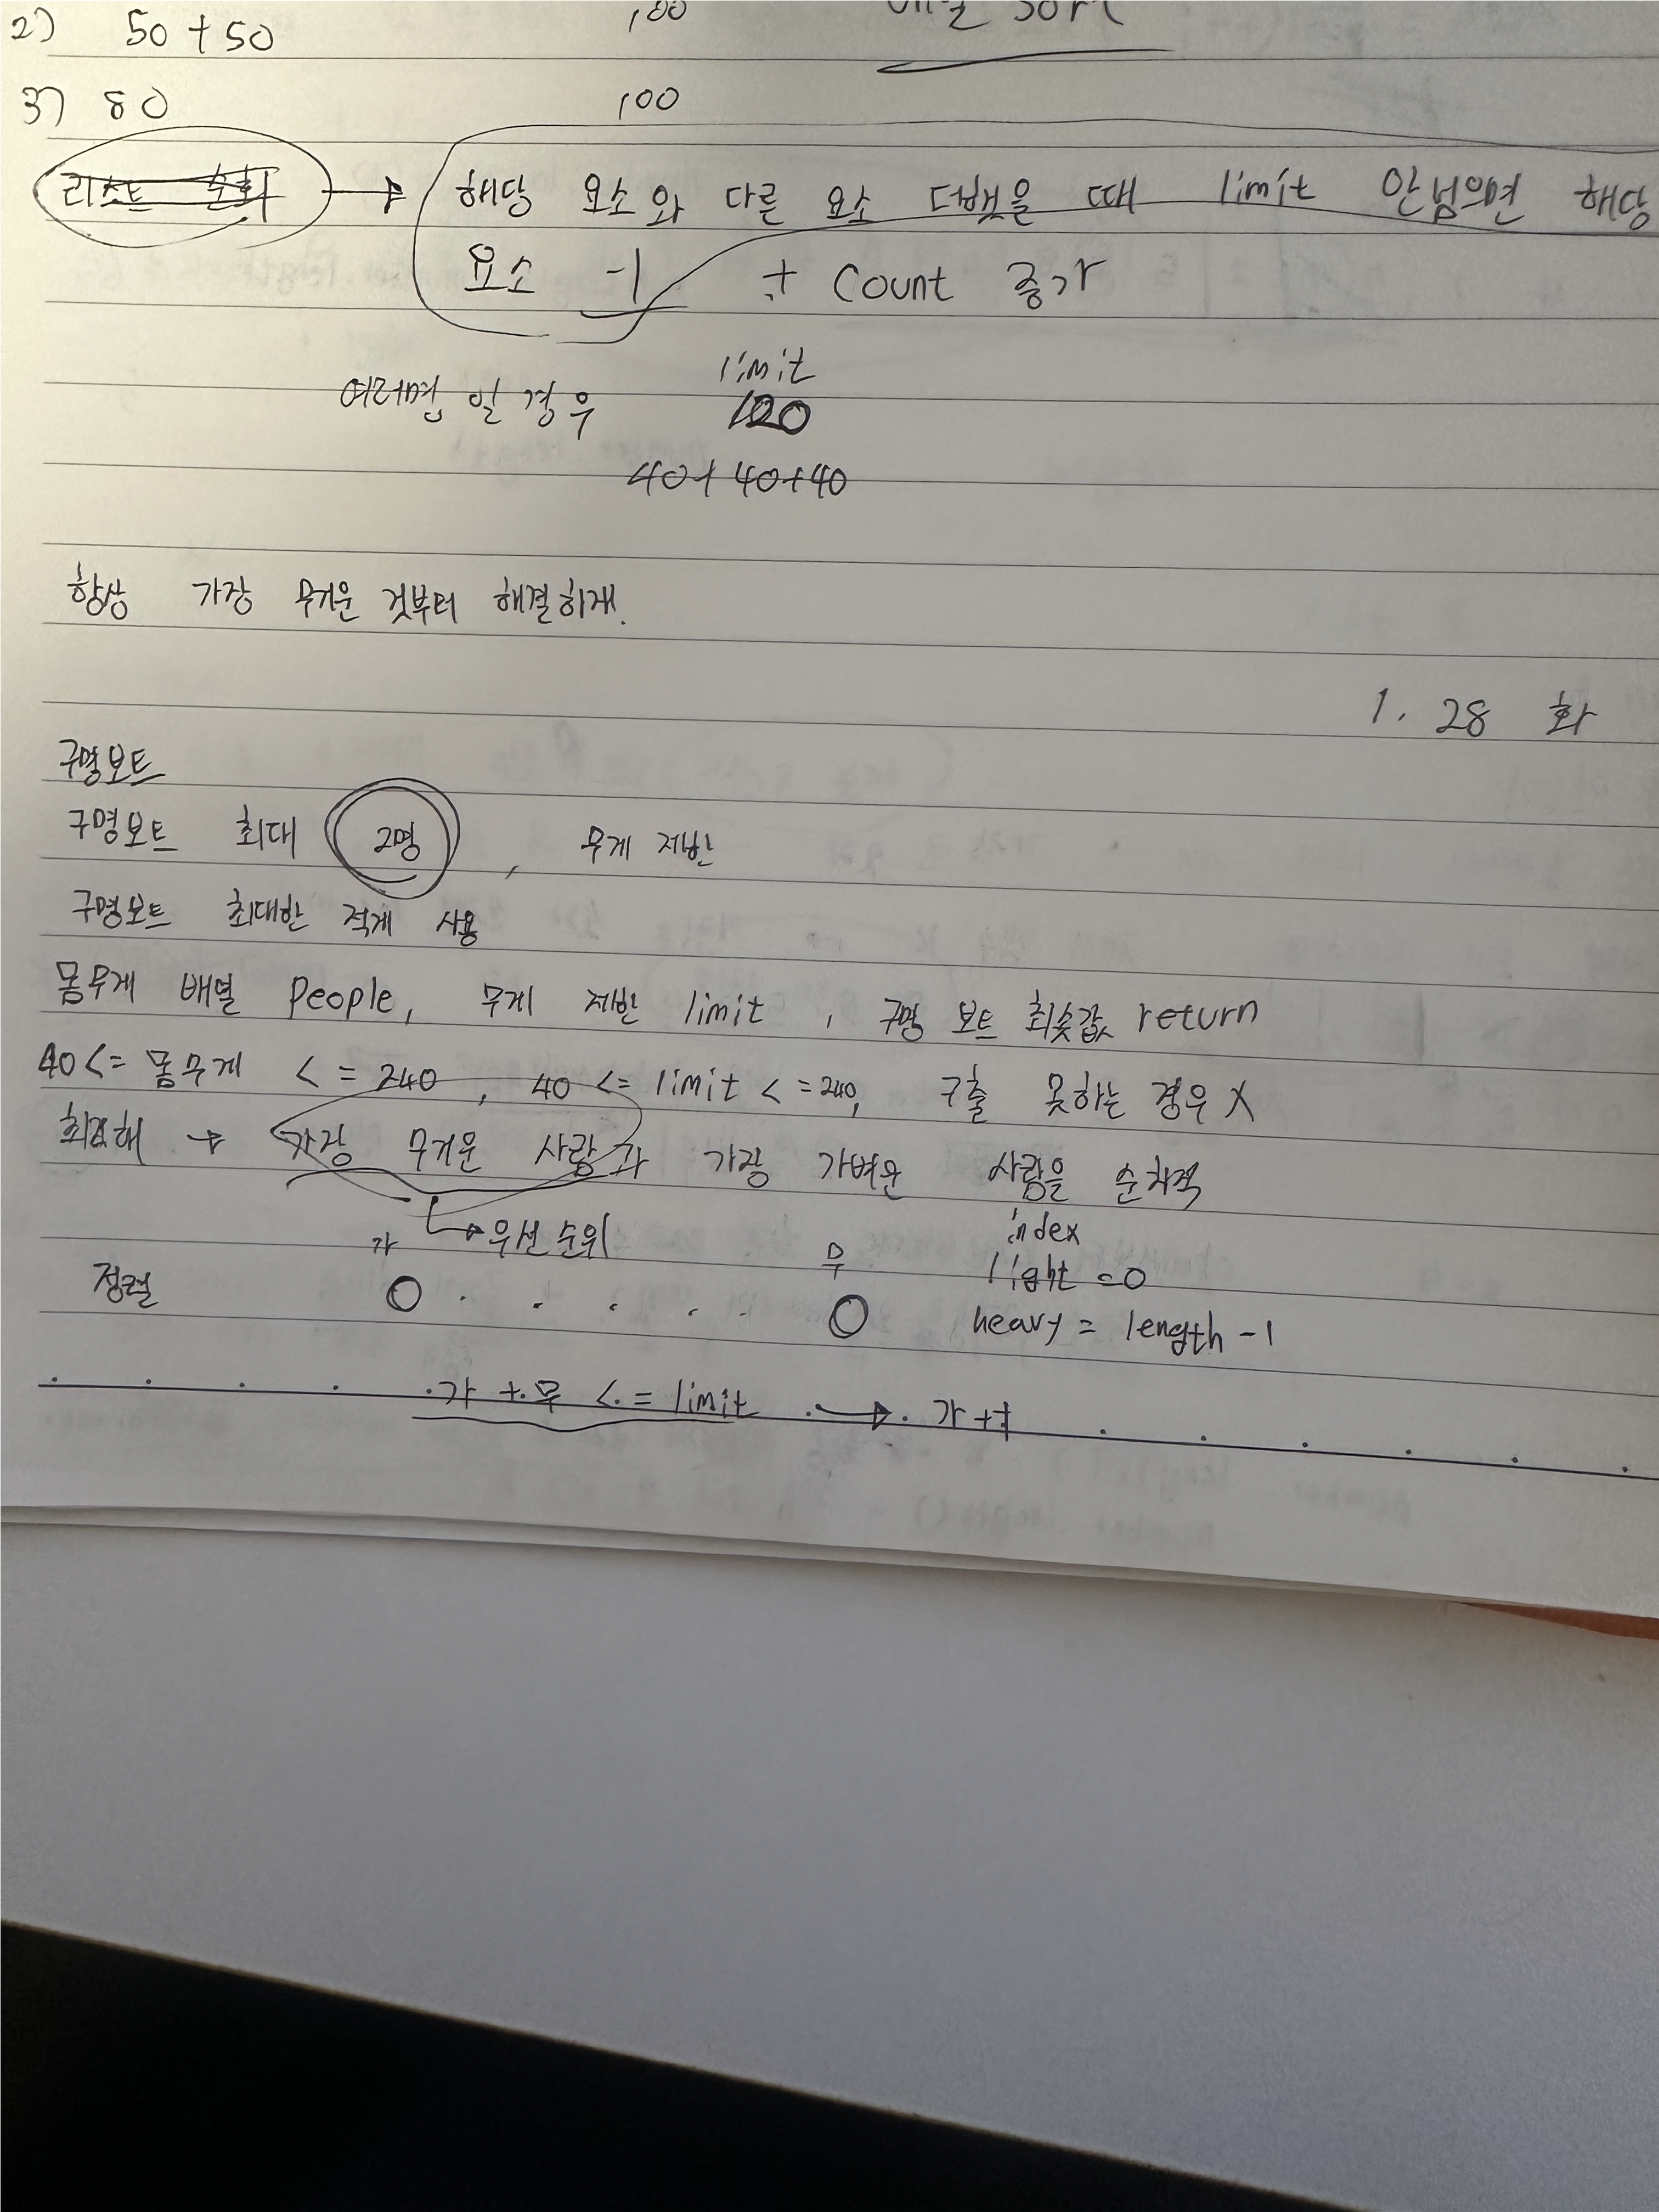 2) 50+50 100 sort
3) 80 100
리스트 순회 → 해당 요소와 다른 요소 더했을 때 limit 안넘으면 해당
요소 -1 + Count 증가
여러명 일 경우 limit
120
40+40+40
항상 가장 무거운 것부터 해결하개.
1. 28 화
구명보트
구명보트 최대 2명, 무게 제한
구명보트 최대한 적게 사용
몸무게 배열 People, 무게 제한 limit, 구명 보트 최솟값 return
40<= 몸무게 <= 240, 40 <= limit <= 240, 구출 못하는 경우 X
→ 가장 무거운 사람과 가장 가벼운 사람을 순차적
가 → 우선순위 무 index
정렬 light = 0
heavy = length - 1
가 + 무 <= limit → 가 ++